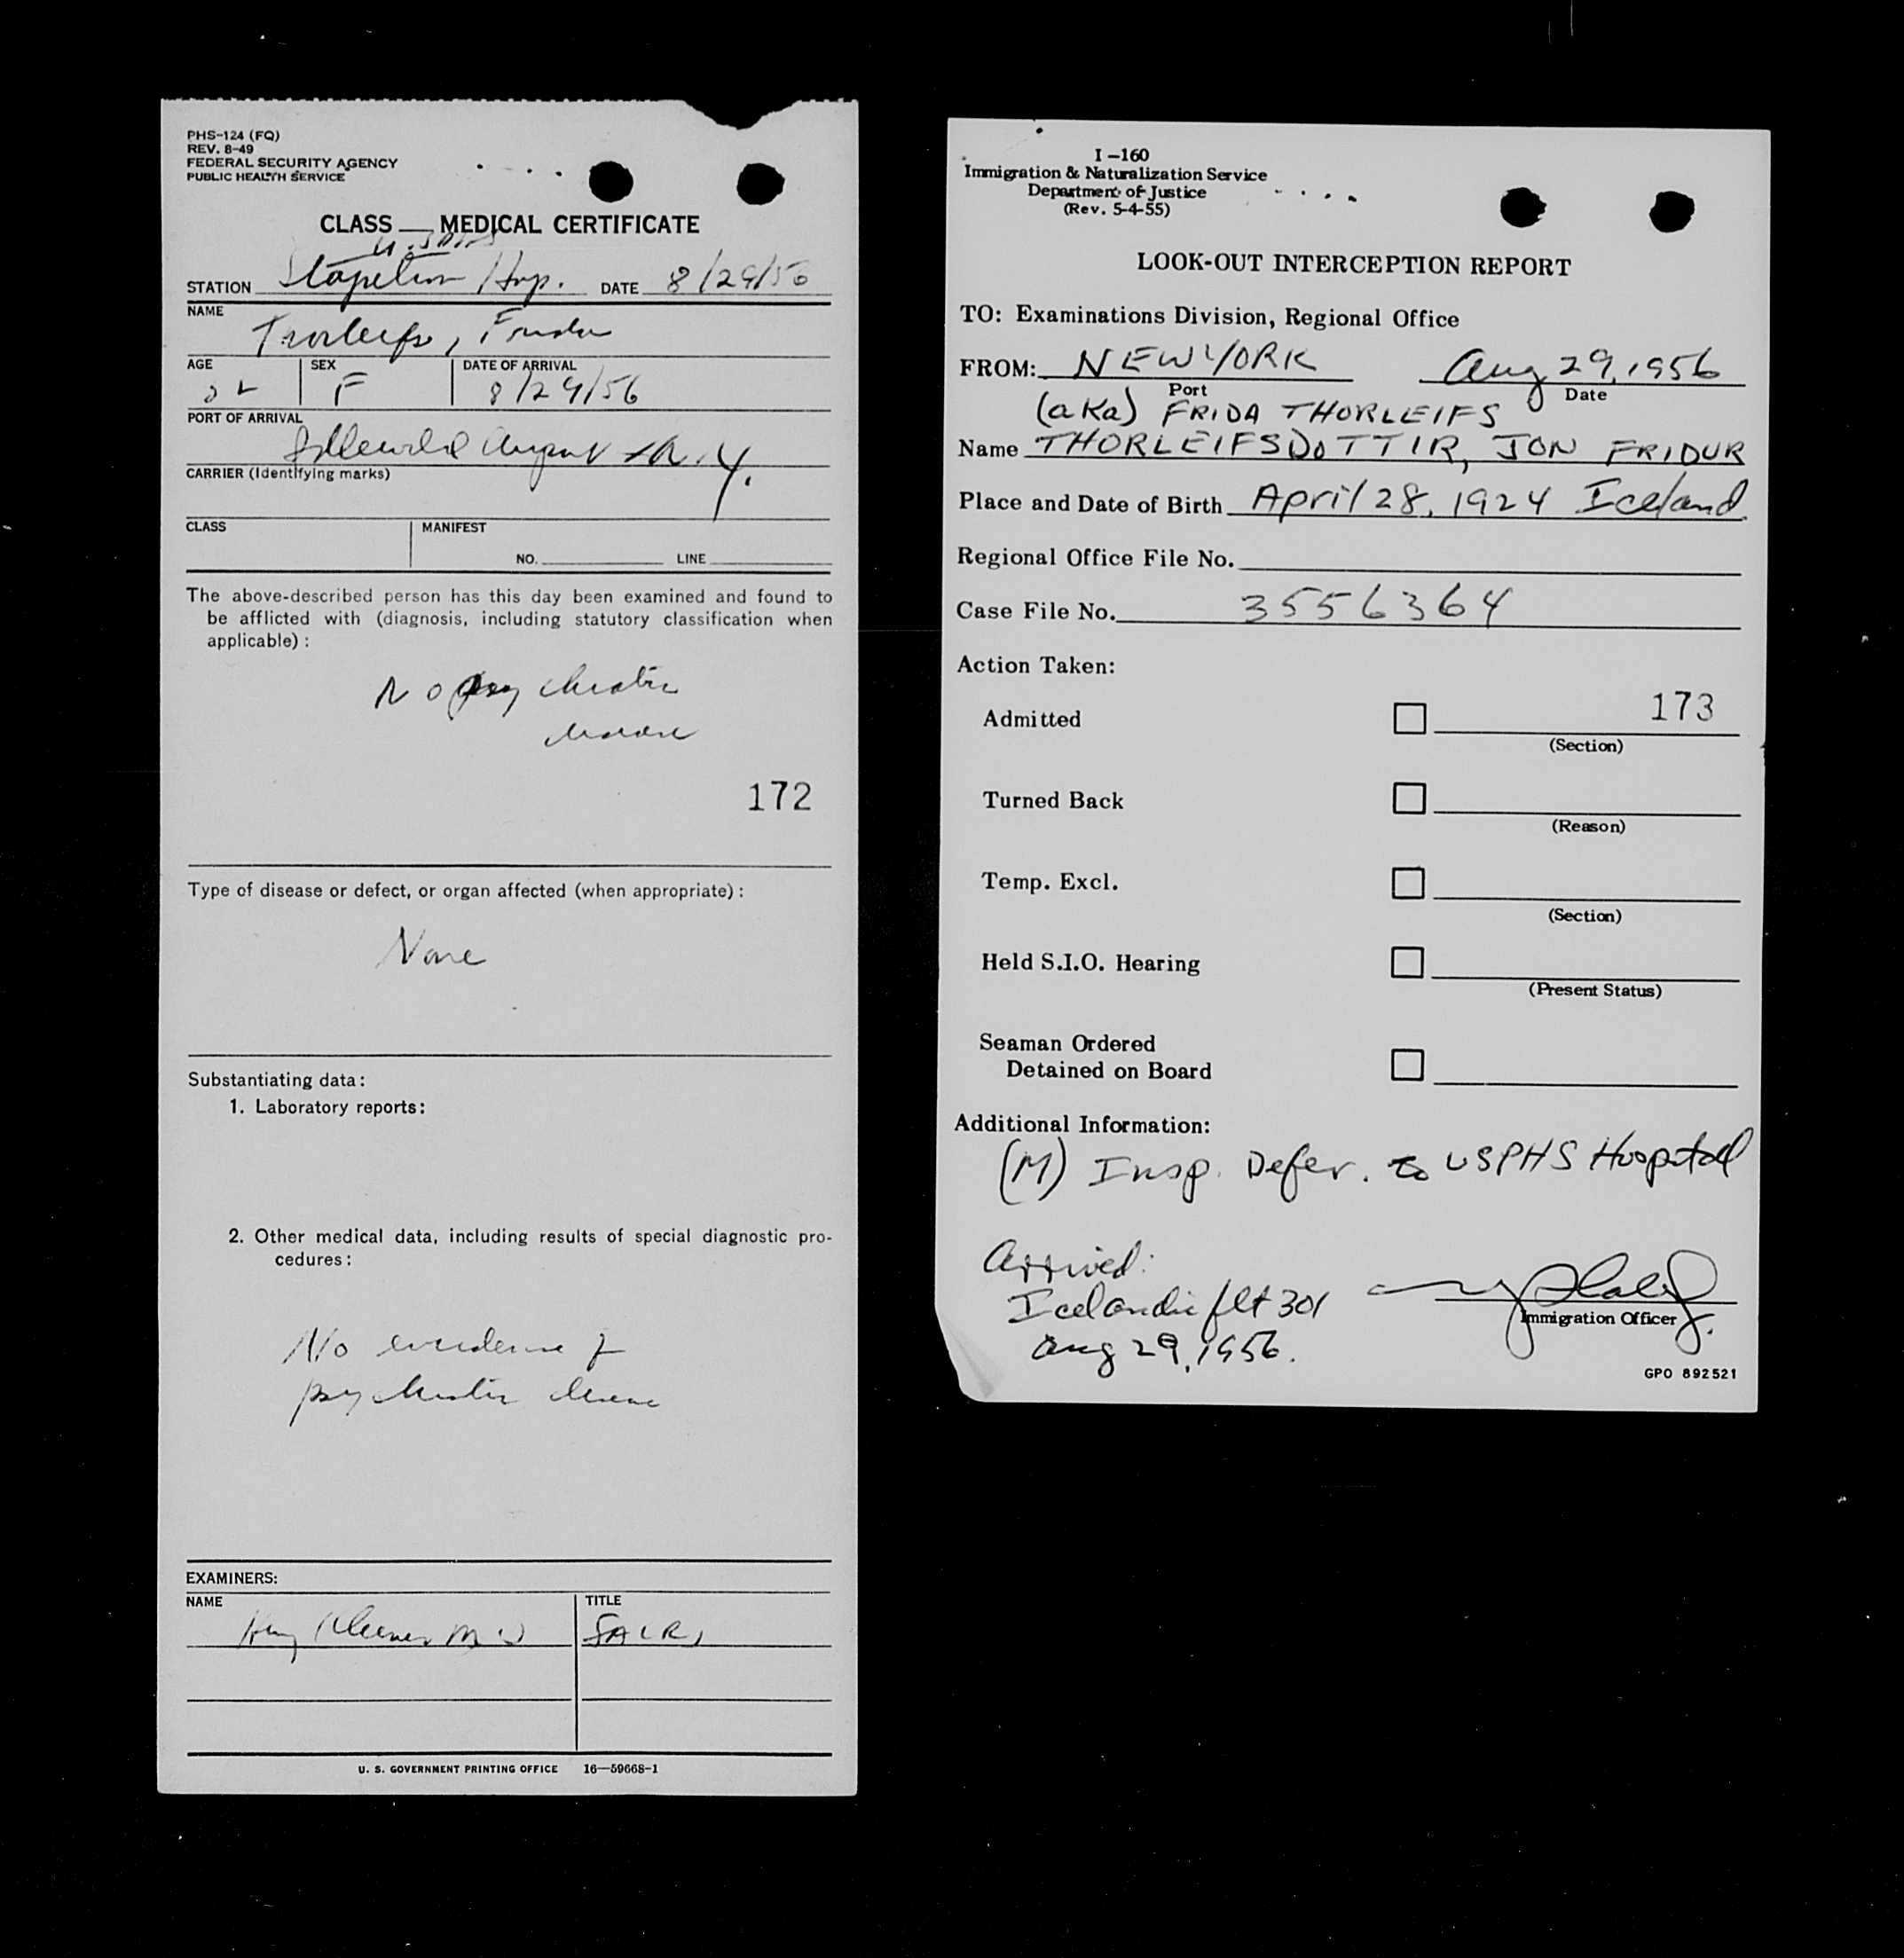 PHS-124 (FQ)
REV. 8-49
FEDERAL SECURITY AGENCY
PUBLIC HEALTH SERVICE
CLASS __ MEDICAL CERTIFICATE
STATION Stapleton Hosp. DATE 8/29/56
NAME
Thorleifs, Frida
AGE SEX DATE OF ARRIVAL
32 F 8/29/56
PORT OF ARRIVAL
Idlewild Airport N.Y.
CARRIER (Identifying marks)
CLASS MANIFEST
NO. LINE
The above-described person has this day been examined and found to
be afflicted with (diagnosis, including statutory classification when
applicable):
No psychiatric
disease
172
Type of disease or defect, or organ affected (when appropriate):
None
Substantiating data:
1. Laboratory reports:
2. Other medical data, including results of special diagnostic pro-
cedures:
No evidence of
psychiatric disease
EXAMINERS:
NAME TITLE
M D
U. S. GOVERNMENT PRINTING OFFICE 16—59668-1
I-160
Immigration & Naturalization Service
Department of Justice
(Rev. 5-4-55)
LOOK-OUT INTERCEPTION REPORT
TO: Examinations Division, Regional Office
FROM: NEW YORK Aug 29, 1956
Port Date
(aka) FRIDA THORLEIFS
Name THORLEIFSDOTTIR, JON FRIDUR
Place and Date of Birth April 28, 1924 Iceland
Regional Office File No.
Case File No. 3556364
Action Taken:
Admitted 173
(Section)
Turned Back
(Reason)
Temp. Excl.
(Section)
Held S.I.O. Hearing
(Present Status)
Seaman Ordered
Detained on Board
Additional Information:
(M) Insp. Defer. to USPHS Hospital
Arrived:
Icelandic flt 301
Aug 29, 1956.
Immigration Officer
GPO 892521